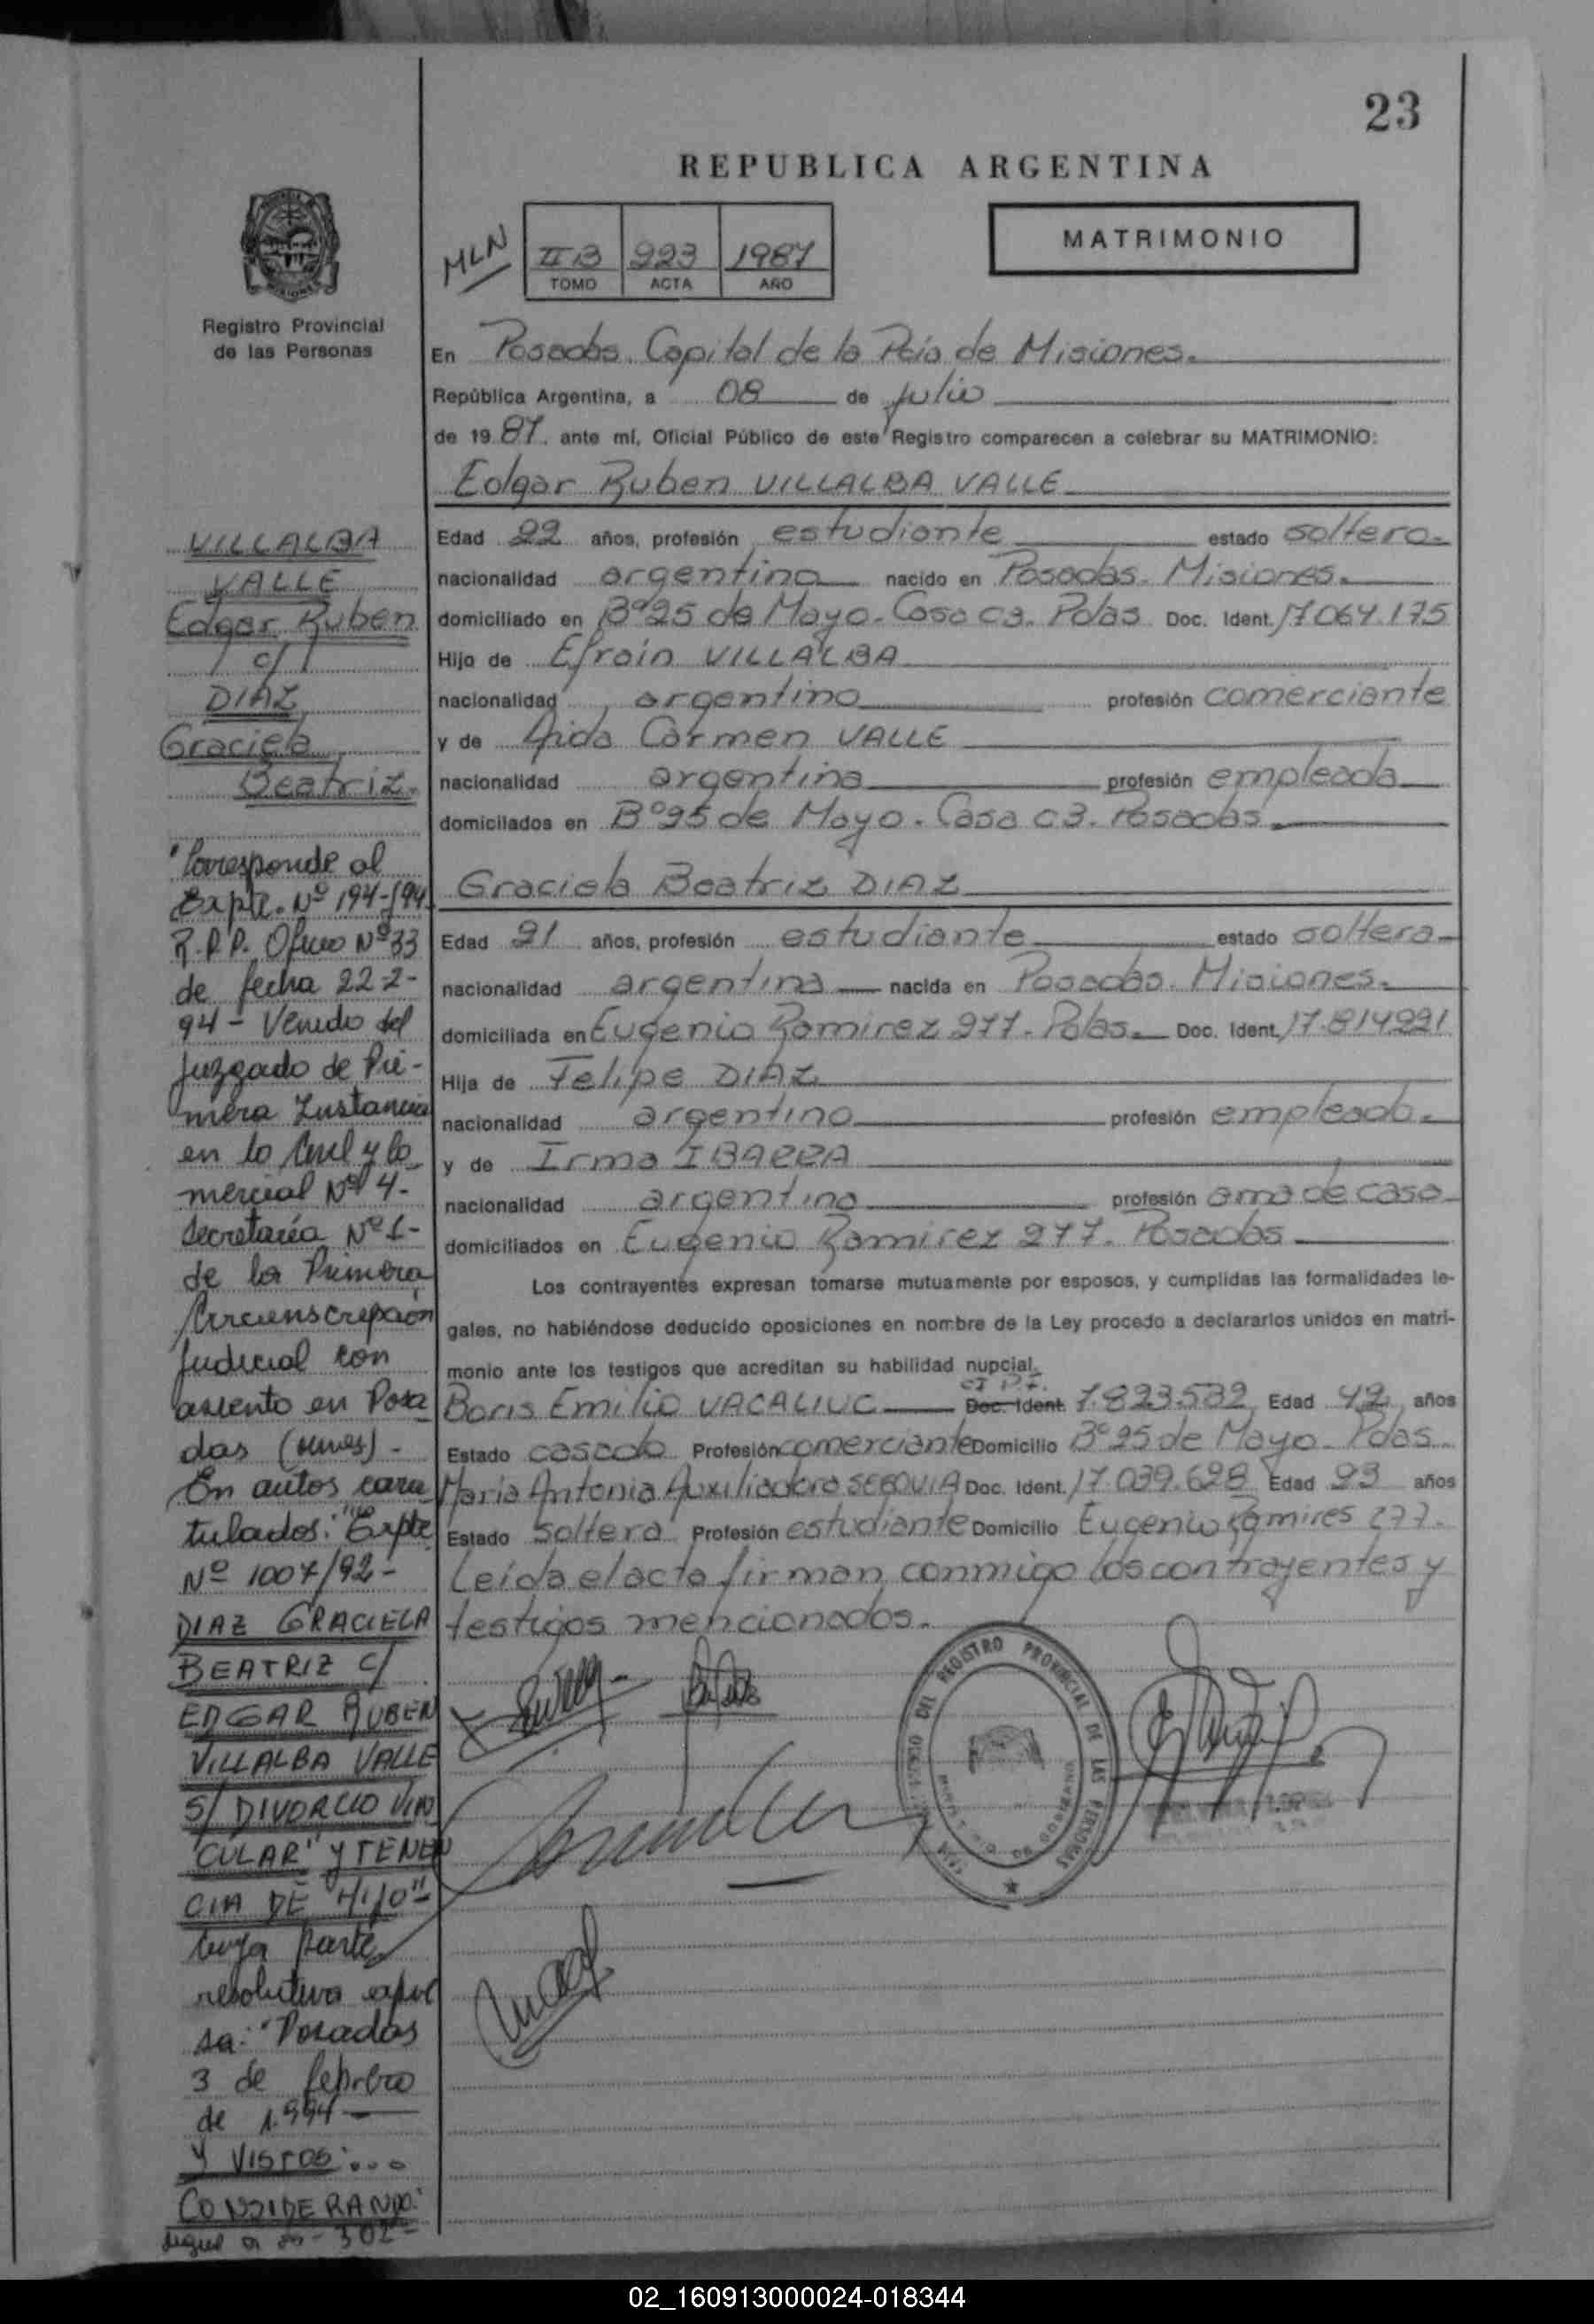 23
REPUBLICA ARGENTINA
MATRIMONIO
MLN
II B 223 1987
TOMO ACTA AÑO
Registro Provincial
de las Personas
En Posadas. Capital de la Pcia de Misiones.
República Argentina, a 08 de julio
de 1987. ante mí, Oficial Público de este Registro comparecen a celebrar su MATRIMONIO:
Edgar Ruben VILLALBA VALLE
Edad 22 años, profesión estudiante estado soltero.
nacionalidad argentina nacido en Posadas. Misiones.
domiciliado en Bº 25 de Mayo. Casa C3. Pdas. Doc. Ident. 17064.175
Hijo de Efrain VILLALBA
nacionalidad argentino profesión comerciante
y de Aida Carmen VALLE
nacionalidad argentina profesión empleada
domiciliados en Bº 25 de Mayo. Casa C3. Posadas.
Graciela Beatriz DIAZ
Edad 21 años, profesión estudiante estado soltera.
nacionalidad argentina nacida en Posadas. Misiones.
domiciliada en Eugenio Ramirez 277. Pdas. Doc. Ident. 17.814221
Hija de Felipe DIAZ
nacionalidad argentino profesión empleado.
y de Irma IBARRA
nacionalidad argentina profesión ama de casa
domiciliados en Eugenio Ramirez 277. Posadas
Los contrayentes expresan tomarse mutuamente por esposos, y cumplidas las formalidades le-
gales, no habiéndose deducido oposiciones en nombre de la Ley procedo a declararlos unidos en matri-
monio ante los testigos que acreditan su habilidad nupcial.
Boris Emilio VACALIUC Doc. Ident. 7.823.532 Edad 42 años
Estado casado Profesión comerciante Domicilio Bº 25 de Mayo. Pdas.
Maria Antonia Auxiliadora SEGOVIA Doc. Ident. 17.039.628 Edad 23 años
Estado soltera Profesión estudiante Domicilio Eugenio Ramires 277.
Leida el acta firman conmigo los contrayentes y
testigos mencionados.
REGISTRO PROVINCIAL DE LAS PERSONAS
VILLALBA
VALLE
Edgar Ruben
c/
DIAZ
Graciela
Beatriz.
"Corresponde al
Expte. Nº 194-/94
R.P.P. Oficio Nº 33
de fecha 22-2-
94 - Venido del
Juzgado de Pri-
mera Instancia
en lo Civil y Co
mercial Nº 4-
Secretaría Nº 1-
de la Primera
Circunscripción
Judicial con
asiento en Posa
das (Mnes) -
En autos cara
tulados: "Expte
Nº 1007/92-
DIAZ GRACIELA
BEATRIZ C/
EDGAR RUBEN
VILLALBA VALLE
S/ DIVORCIO VIN
CULAR" Y TENEN
CIA DE HIJO"
Cuya parte
resolutiva expre
sa: "Posadas
3 de febrero
de 1.994
Y VISTOS: ...
CONSIDERANDO:
sigue a 302
02_160913000024-018344